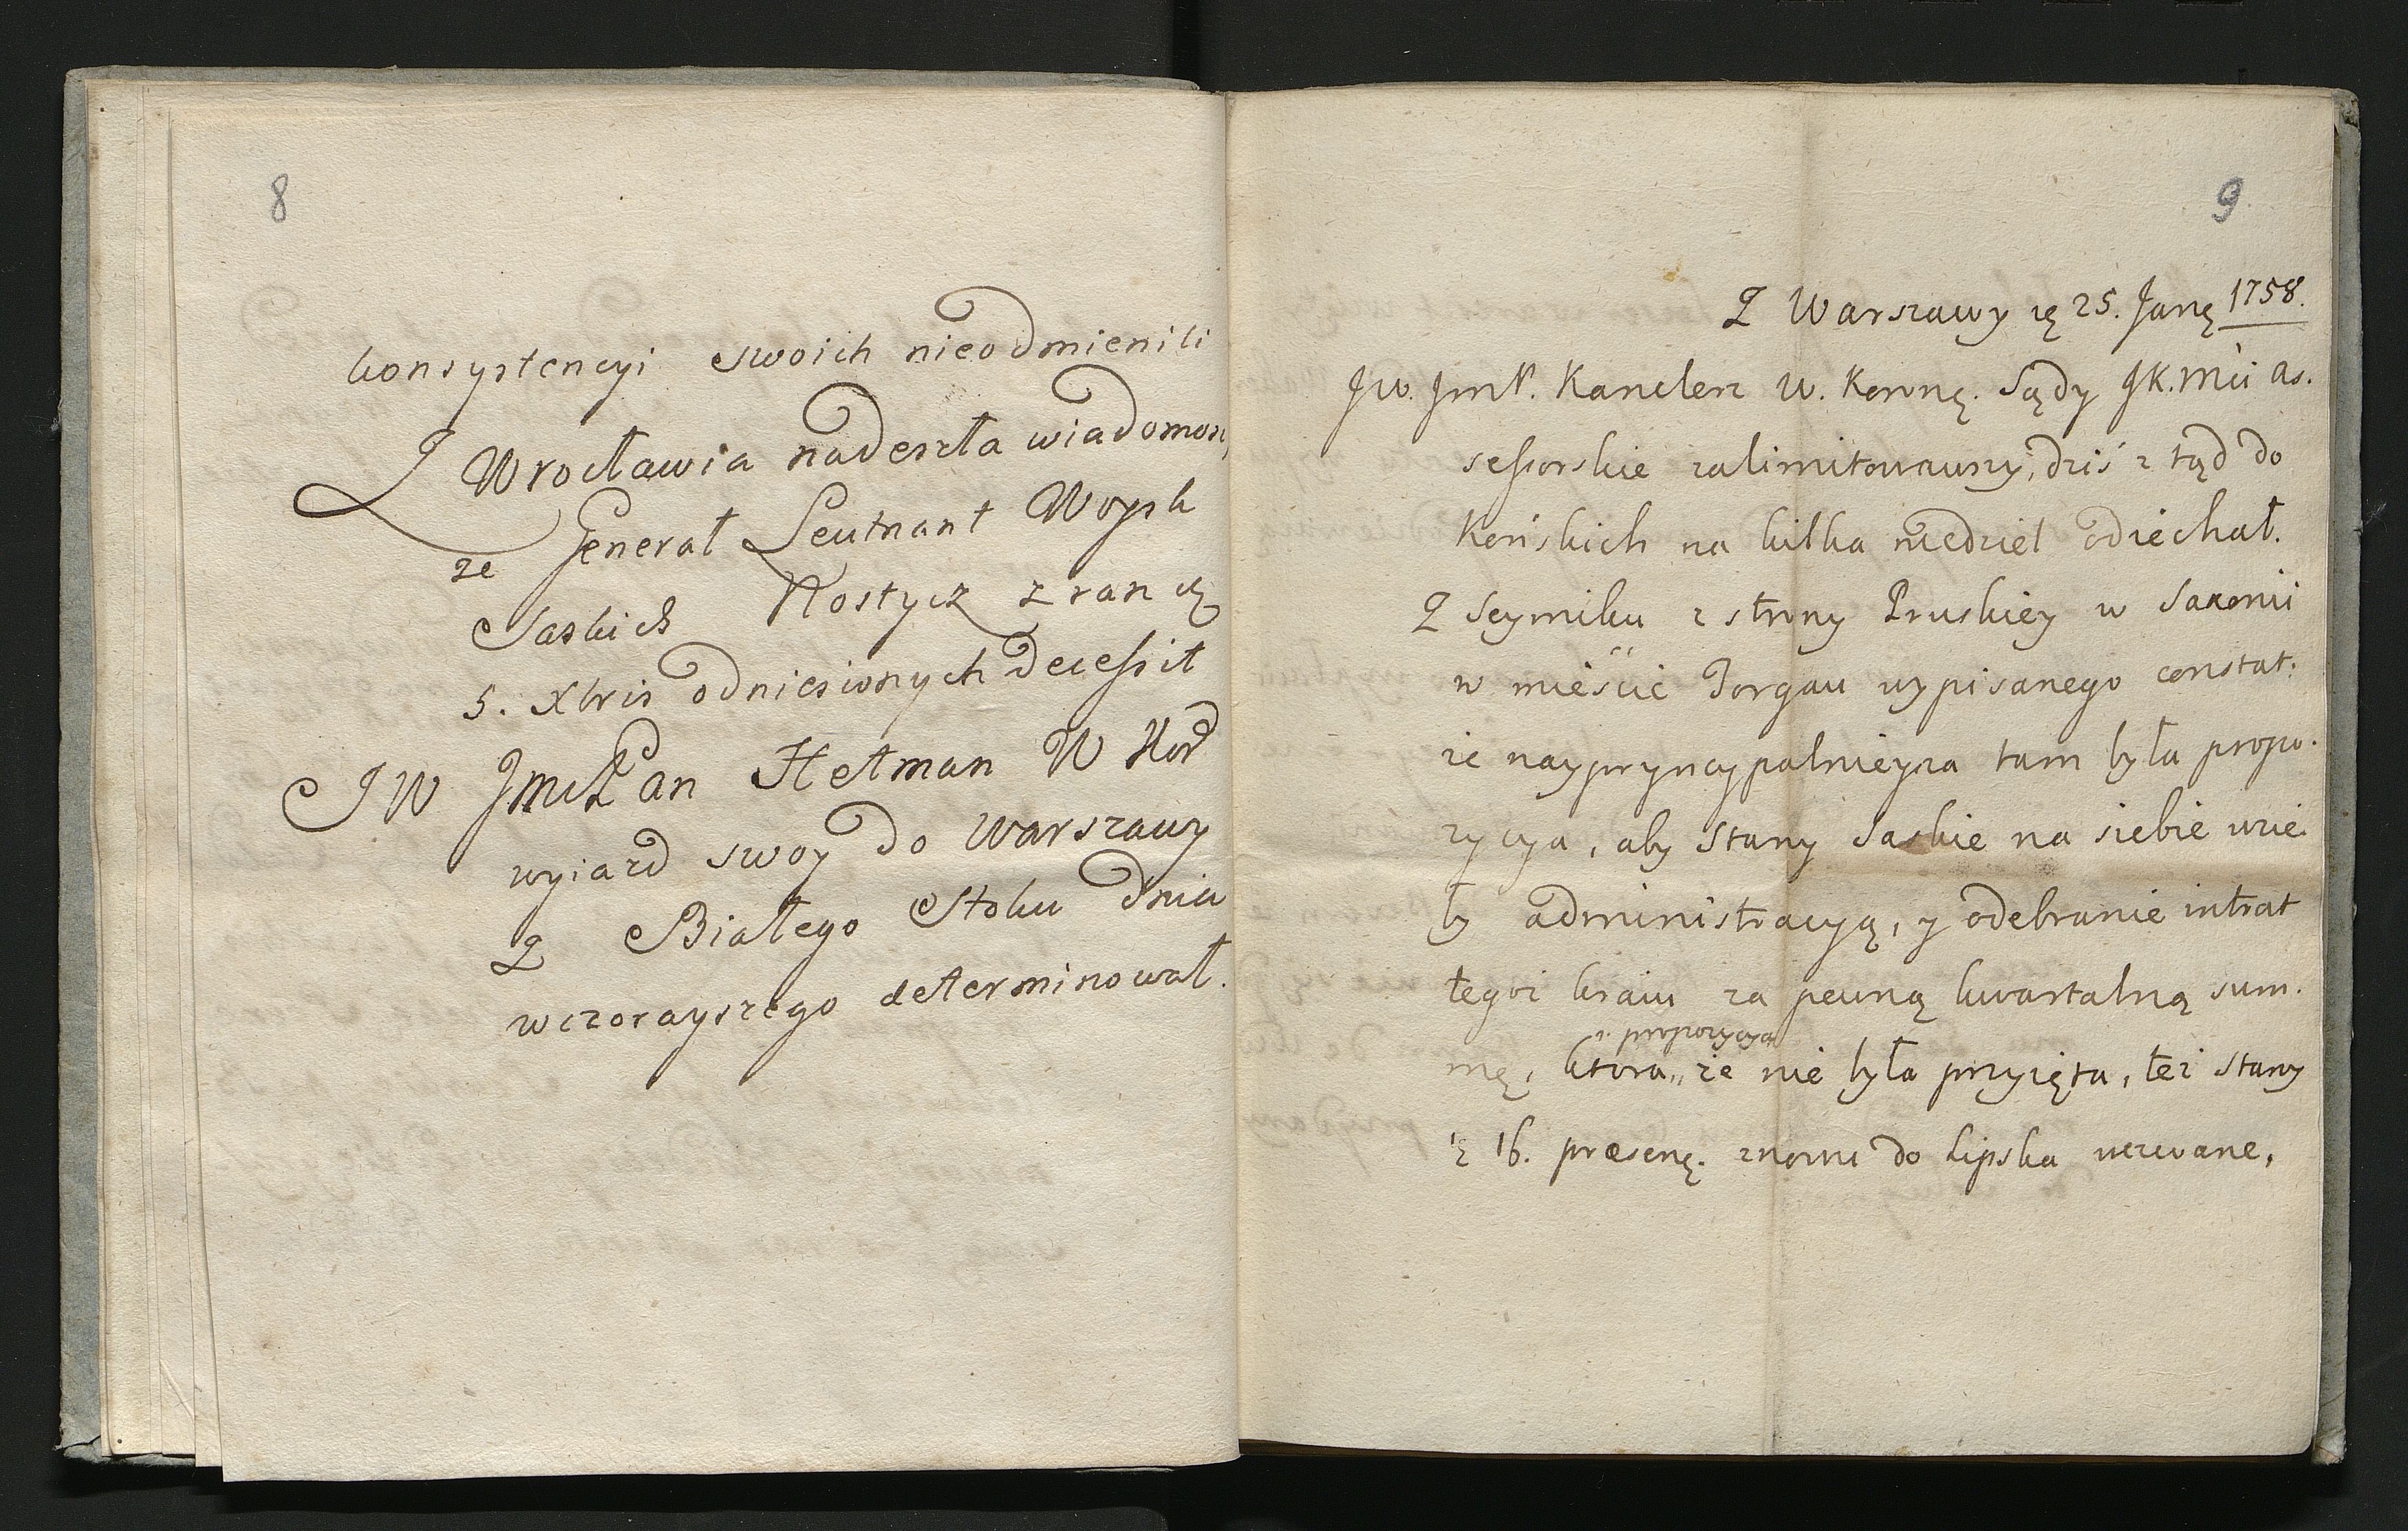 8
konsystencyi swoich nieodmienili
Z Wrocławia nadeszła wiadomosc,
ze Generał Leutnant Woysk
Saskich Nostycz z ran
5. Xbris odniesionych decessit
JW JmcPan Hetman W Kor
wyiazd swoy do Warszawy
Z Białego Stoku dnia
wczorayszego determinował.
9
Z Warszawy 25. Janę 1758.
JW. JmP. Kanclerz W. Koronę. Sądy JK.Mci as.
sessorskie zalimitowawszy, dziś z tąd do
Końskich na kilka niedziel odiechał.
Z Seymiku z strony Pruskiey w Saxonii
w mieście Torgau wypisanego constat:
że naypryncypalnieysza tam była propo.
zycya, aby Stany Saskie na siebie wzie.
ły administracyą, y odebranie intrat
tegoż kraiu za pewną kwartalną sum.
propozycya
mę, ktora,, że nie była przyięta, też Stany
16. præsenę. znowu do Lipska wezwane,